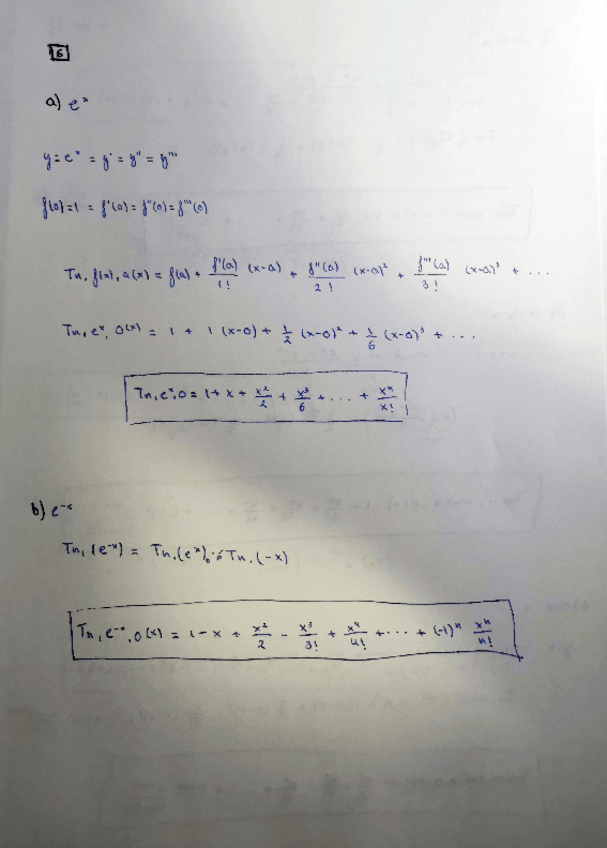 6
a) e^x
y = e^x = y' = y'' = y'''
f(0) = 1 = f'(0) = f''(0) = f'''(0)
Tn, f(x), a(x) = f(a) + f'(a)/1! (x-a) + f''(a)/2! (x-a)² + f'''(a)/3! (x-a)³ + ...
Tn, e^x, 0(x) = 1 + 1 (x-0) + 1/2 (x-0)² + 1/6 (x-0)³ + ...
Tn, e^x, 0 = 1 + x + x²/2 + x³/6 + ... + x^n/x!
b) e^-x
Tn, (e^-x) = Tn, (e^x) Tn, (-x)
Tn, e^-x, 0(x) = 1 - x + x²/2 - x³/3! + x⁴/4! + ... + (-1)^n x^n/n!